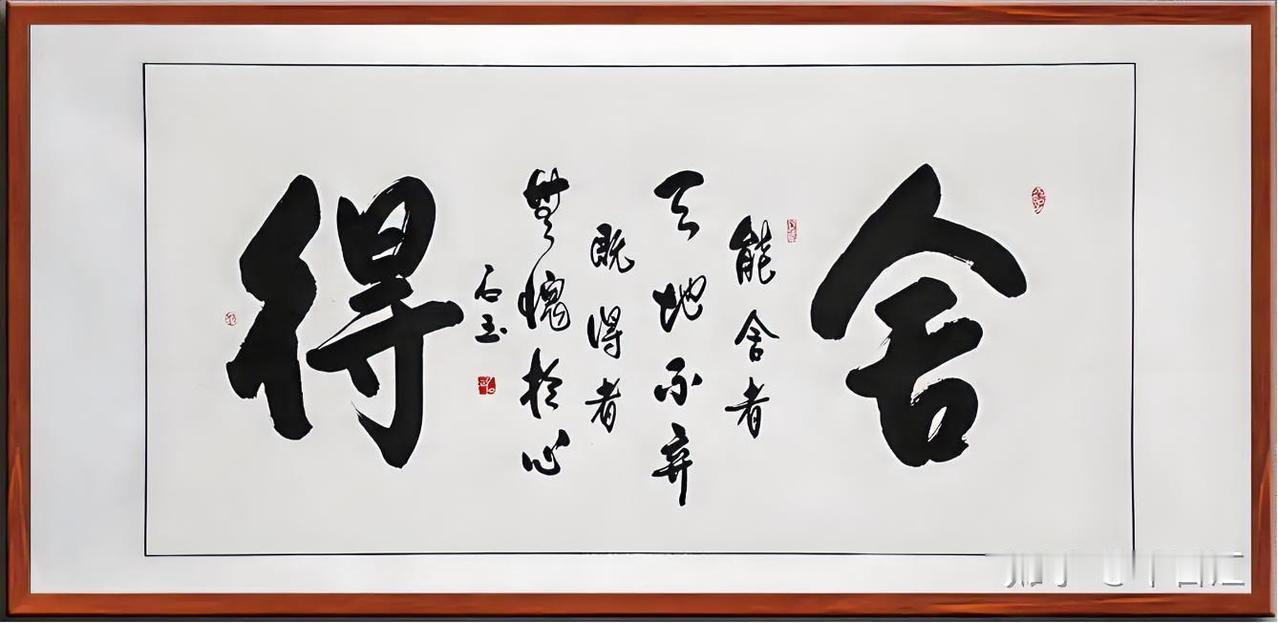 舍
能舍者
天地不弃
既得者
無愧於心
石玉
得